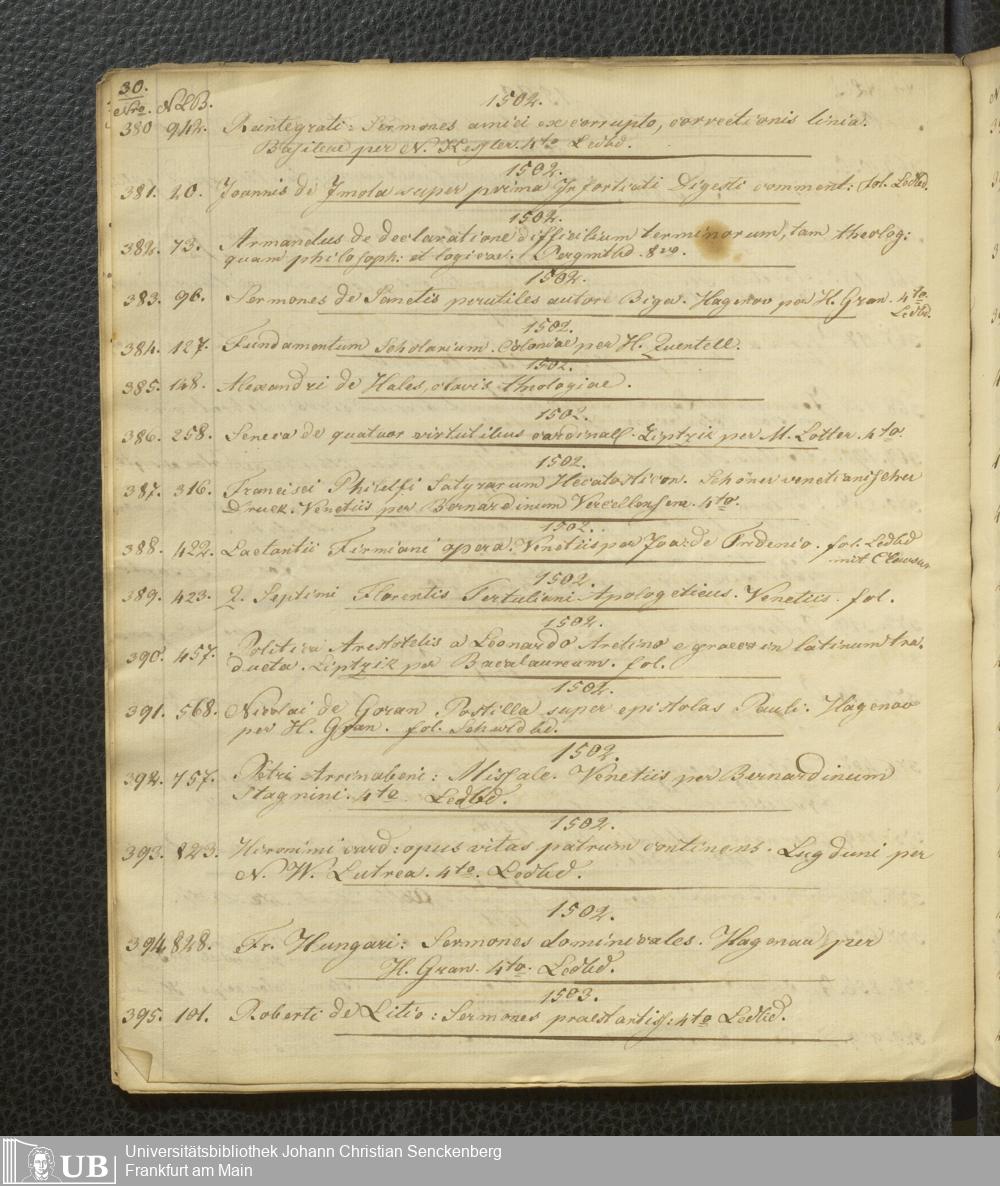 30.
Nro. NLB. 1502.
380 942. Reintegrati: Sermones amici ex corrupto, correctionis linia.
Basileae per N. Kessler. 4to Ledbd.
1502.
381. 20. Joannis de Jmola super prima Jnfortiati Digesti comment: fol. Ledbd.
1502.
382. 73. Armandus de declaratione difficilium terminorum, tam theolog:
quam philosoph: et logicae. Pergmtbd. 8vo.
1502.
383. 96. Sermones de Sanctis perutiles autore Biga. Hagenov per H. Gran. 4to
Ledbd.
1502.
384. 127. Fundamentum Scholarium. Coloniae per H. Quentell.
1502.
385. 148. Alexandri de Hales, clavis theologiae.
1502.
386. 258. Seneca de quatuor virtutibus cardinall. Liptzik per M. Lotter. 4to
1502.
387. 316. Francisci Philelfi Satyrarum Hecatosticon. Schöner venetianischer
Druck. Venetiis per Bernardinum Vercellensem. 4to.
1502.
388. 422. Lactantii Firmiani opera. Venetiis per Joa: de Tridenio. fol. Ledbd
mit Clausur
1502.
389. 423. Q. Septimi Florentis Tertuliani Apologeticus. Venetiis. fol.
1502.
390. 457. Politici Arestotelis a Leonardo Aretino e graeco in latinum tra,
ducta. Liptzik per Bacalaureum. fol.
1502.
391. 568. Nicolai de Goran Postilla super epistolas Pauli. Hagenov
per H. Gran. fol. Schwldbd.
1502.
392. 757. Petri Arrinabeni: Missale. Venetiis per Bernardinum
Stagnini. 4to Ledbd.
1502.
393. 823. Hironimi card: opus vitas patrum continens. Lugduni per
N. W. Lutrea. 4to. Ledbd.
1502.
394. 828. Fr. Hungari: Sermones dominicales. Hagenau per
H. Gran. 4to. Ledbd.
1503.
395. 101. Roberti de Litio: Sermones praestantiss: 4to Ledbd.
UB
Universitätsbibliothek Johann Christian Senckenberg
Frankfurt am Main